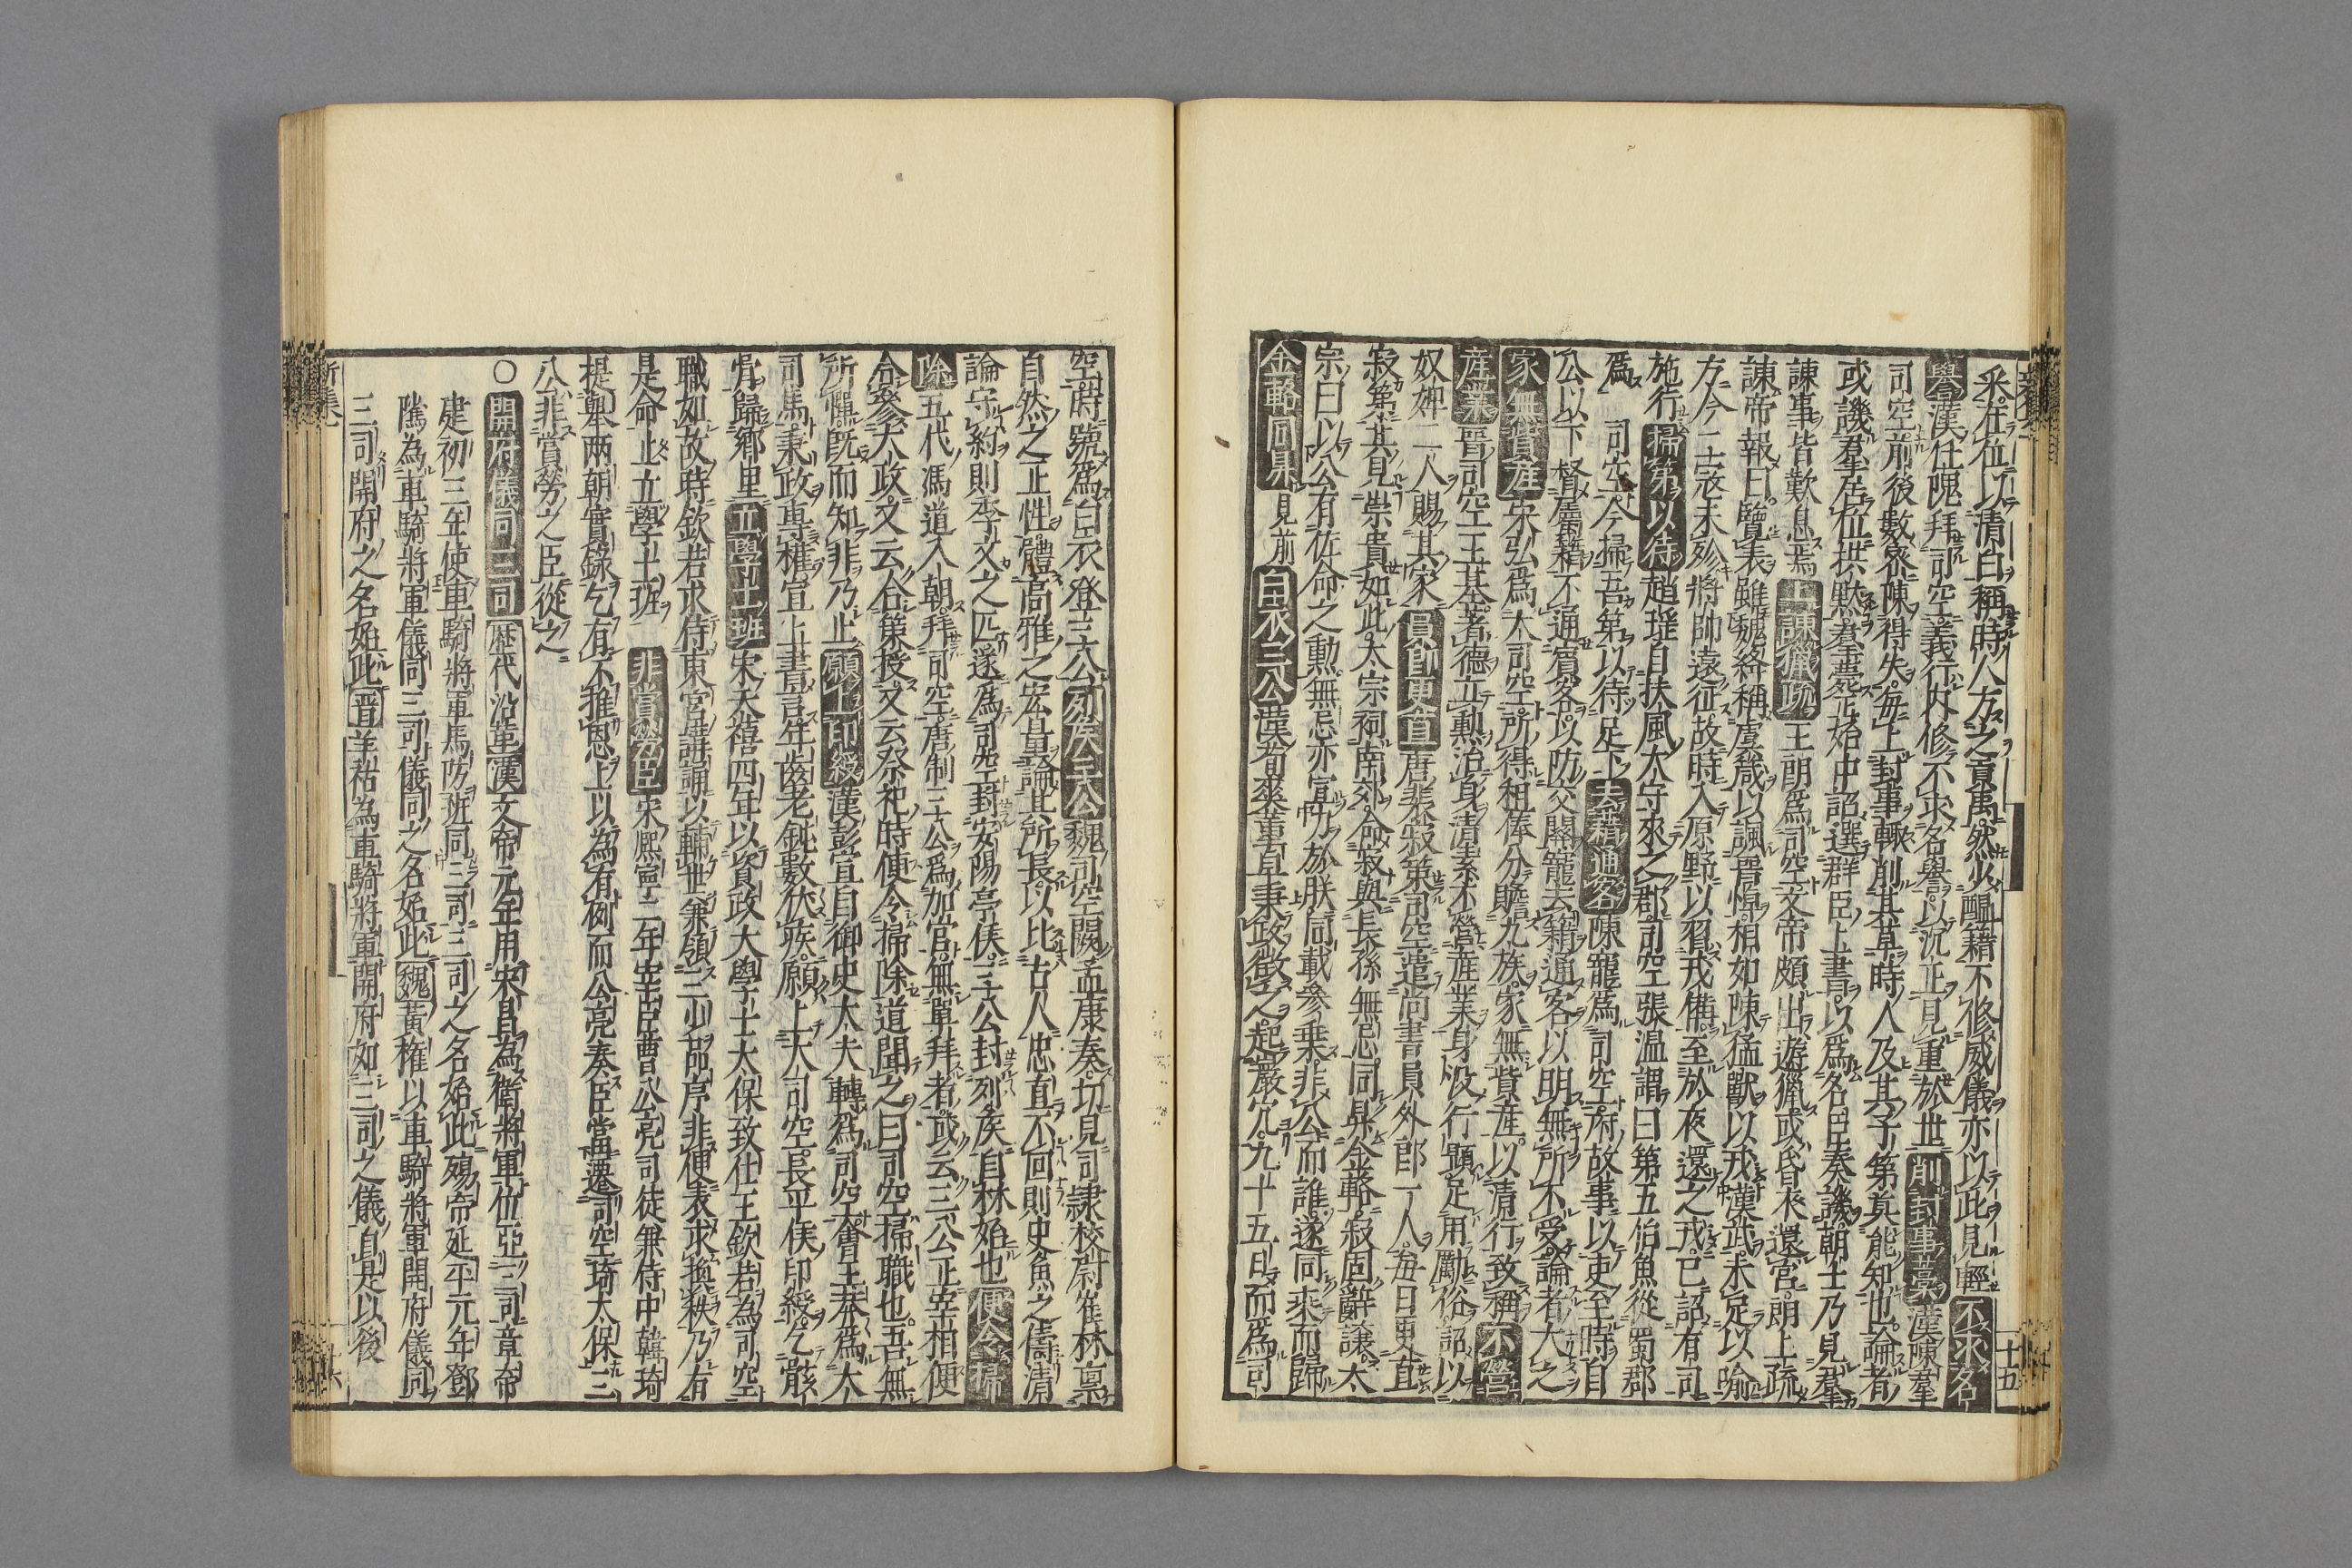 釆在位以清白稱時人方之貢禹然少醞籍不修威儀亦以此見輕不求名
譽漢任隗拜司空義行內修不求名譽以沉正見重於世削封事藁漢陳羣
司空前後數密陳得失每上封事輒削其草時人及其子第莫能知也論者
或譏羣居位拱默羣薨正始中詔選群臣上書以爲名臣奏議朝士乃見羣
諫事皆歎息焉上諫獵疏王朗爲司空文帝頗出遊獵或昏夜還宮朗上疏
諫帝報曰覽表雖魏絳稱虞箴以諷晋悼相如陳猛獸以戒漢武未足以喻
方今二寇未殄將帥遠征故時入原野以習戎備至於夜還之戒已詔有司
施行掃第以待趙瑶自扶風太守來之郡司空張温謂曰第五伯魚從蜀郡
爲司空今掃吾第以待足下去藉通客陳寵爲司空府故事以吏至時自
公以下督屬籍不通賓客以防交關寵去籍通客以明無所不受論者大之
家無貲産宋弘爲大司空所得租俸分贍九族家無貲産以清行致稱不營
産業晋司空王基著德立勲治身清素不營産業身沒行顯足用勵俗詔以
奴婢二人賜其家員郎更直唐裴寂第司空遣尚書員外郎一人每日更直
寂第其見崇貴如此太宗祠南郊命寂與長孫無忌同昇金輅寂固辭讓太
宗曰以公有佐命之勳無忌亦宣力於朕同載參乗非公而誰遂同乘而歸
金輅同昇見前白衣三公漢荀爽董卓秉政徵之起巖穴九十五日而爲司
十五
空時號爲白衣登三公列侯三公魏司空闕孟康奏切見司隷校尉崔林禀
自然之正性體高雅之宏量論其所長以比古人忠直不回則史魚之儔清
論守約則季文之匹遂爲司空封安陽亭侯三公封列侯自林始也便令掃
除五代馮道入朝拜司空唐制三公爲加官無單拜者或云三公正宰相便
合參大政又云合策授又云祭祀時便令掃除道聞之曰司空掃職也吾無
所憚旣而知非乃止願上印綬漢彭宣自御史大夫轉爲司空會王莽爲大
司馬秉政專權宣上書言年齒老眊數伏疾願上大司空長平侯印綬乞骸
骨歸鄉里立學士班宋天禧四年以資政大學士太保致仕王欽若為司空
職如故時欽若求侍東宮講誦以輔世兼領三少品序非便表求換秩乃有
是命止立學士班非賞勞臣宋熈寧二年宰臣曹公亮司徒兼侍中韓琦
提舉兩朝實錄乞有不推恩上以為有例而公亮奏臣當遷司空琦太保三
公非賞勞之臣從之
○開府儀同三司歷代沿革漢文帝元年用宋昌為衛將軍位亞三司章帝
建初三年使車騎將軍馬防班同三司三司之名始此殤帝延平元年鄧
隲為車騎將軍儀同三司儀同之名始此魏黄權以車騎將軍開府儀同
三司開府之名始此晋羊祜為車騎將軍開府如三司之儀自是以後